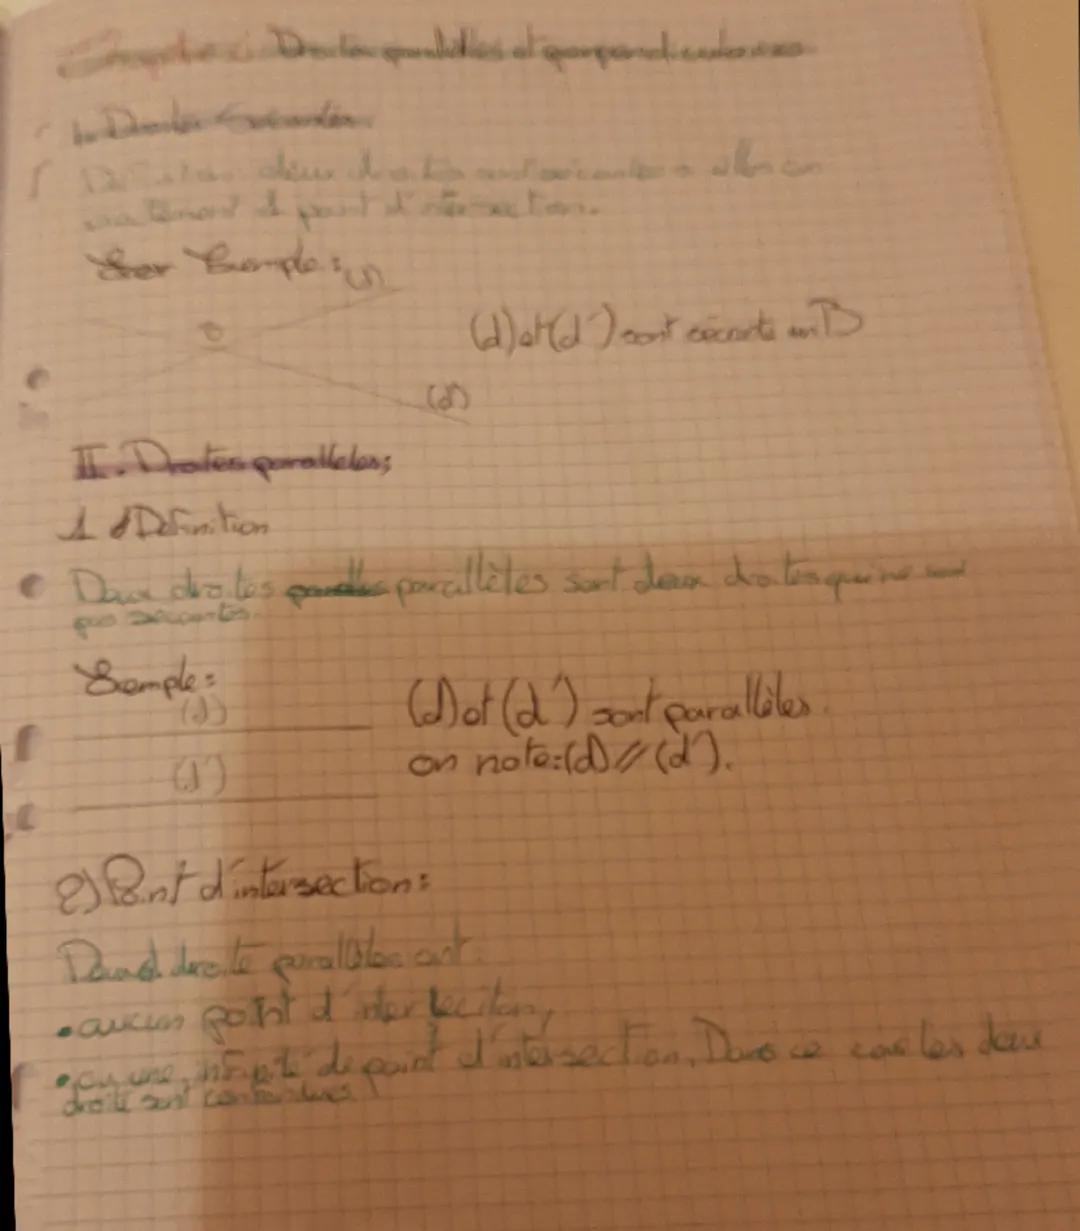 Chapitre : Droites parallèles et perpendiculaires
I. Droites Secantes
Définition deux droites sont sécantes si elles on
point d'intersection.
Exemple :
(d) et (d') sont sécantes en B
(d)
II. Droites paralleles;
1 Definition
Deux droites parallètes sont deux droites qui ne sont
pas secantes.
Exemple :
(d)
(d) et (d') sont parallèles.
on note:(d) // (d').
(d')
2) Point d'intersection :
droite parallèles ont :
• aucun point d'intersection,
• ou une infinité de point d'intersection. Dans ce cas les deux
droite sont confondues.